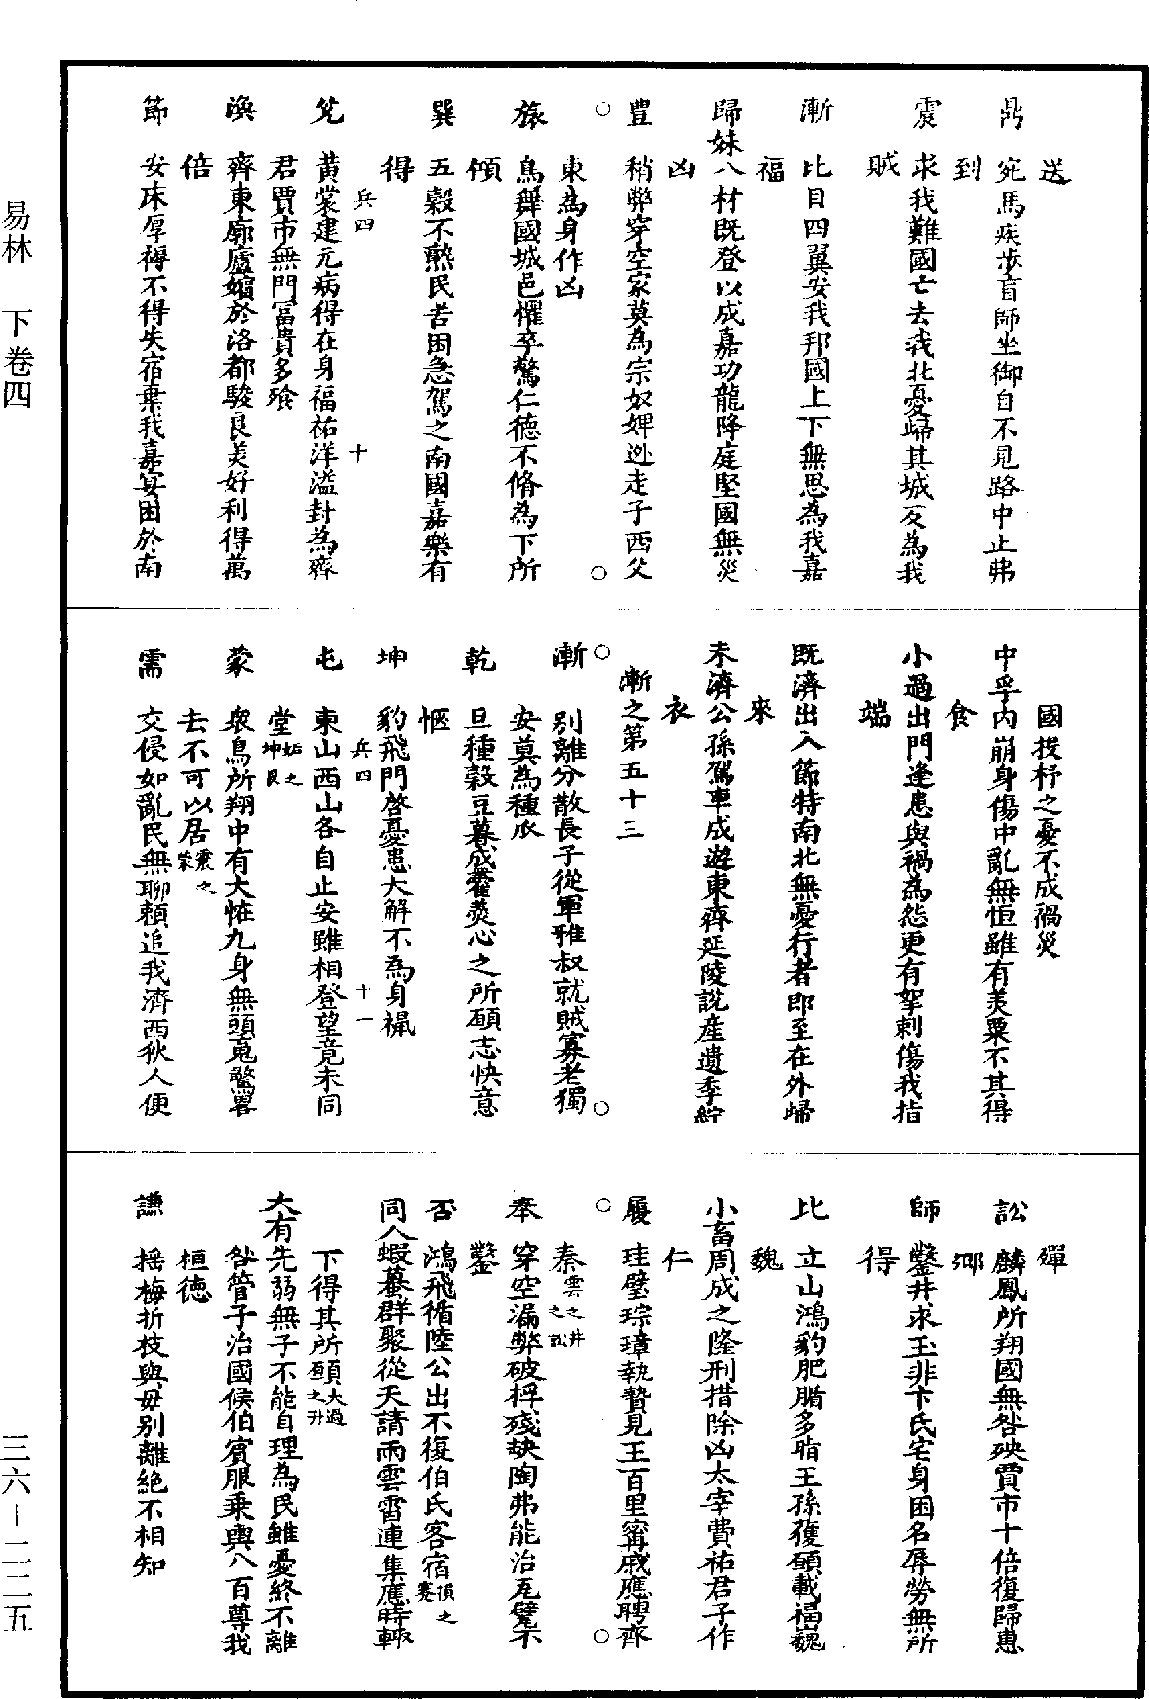 送
鼎　宛馬疾步盲師坐御目不見路中止弗
到
震　求我難國亡去我北憂歸其城反為我
賊
漸　比目四翼安我邦國上下無思為我嘉
福
歸妹八材既登以成嘉功龍降庭堅國無災
凶
豊　稍弊穿空家莫為宗奴婢逊走子西父
東為身作凶
旅　鳥舞國城邑懼卒驚仁德不脩為下所
傾
巽　五穀不熟民苦困急駕之南國嘉樂有
得
兵四　十
兊　黃裳建元病得在身福祐洋溢封為齊
君賈市無門冨貴多殘
渙　齊東廓廬嬪於洛都駿良美好利得萬
倍
節　安床厚褥不得失宿棄我嘉宴困於南
國投杼之憂不成禍災
中孚内崩身傷中亂無恒雖有美粟不其得
食
小過出門逢患與禍為怨更有挐刺傷我指
端
既濟出入節特南北無憂行者即至在外歸
來
未濟公孫駕車成遊東齊延陵說産遺季紵
衣
漸之第五十三
漸　別離分散長子從軍雅叔就賊寡老獨
安莫為種瓜
乾　旦種穀豆暮成藿羮心之所願志快意
愜
坤　豹飛門啓憂患大解不為身禍
兵四　十一
屯　東山西山各自止安雖相登望竟未同
堂姤之坤艮
蒙　衆鳥所翔中有大怪九身無頭䰟驚魄
去不可以居震之蒙
需　交侵如亂民無聊賴追我濟西狄人便
殫
訟　麟鳳所翔國無咎殃賈市十倍復歸惠
郷
師　鑿井求玉非卞氏宅身困名辱勞無所
得
比　立山鴻豹肥腯多脂王孫獲願載福巍
魏
小畜周成之隆刑措除凶太宰費祐君子作
仁
履　珪璧琮璋執贄見王百里甯戚應聘齊
秦需之井之訟
泰　穿空漏弊破桴殘缺陶弗能治瓦甓不
鑿
否　鴻飛循陸公出不復伯氏客宿損之蹇
同人蝦蟇群聚從天請雨雲雷連集應時輒
下得其所願大過之升
大有先弱無子不能自理為民雖憂終不離
咎管子治國侯伯賓服乗輿八百尊我
桓德
謙　揺梅折枝與母别離絶不相知
易林　下卷四
三六－二二五